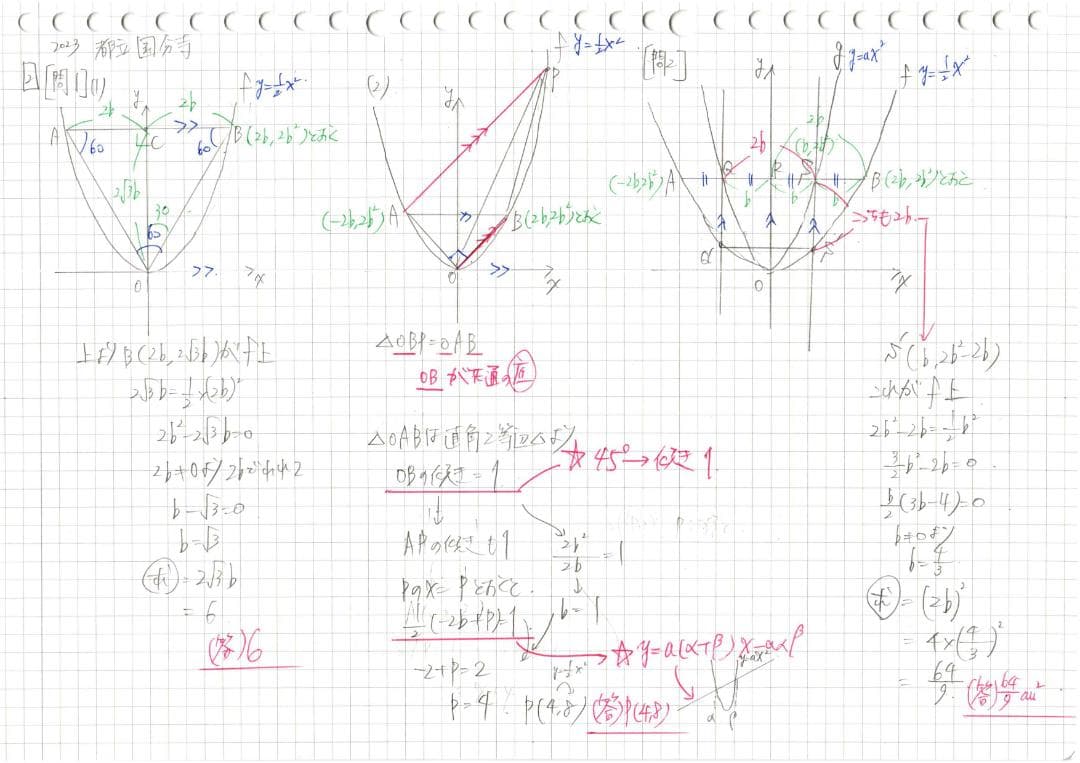 2023 都立国分寺
2 [問1](1)
f y=1/2x²
2b 2b
y
A
C
B(2b,2b²)とおく
60 60
2√3b
30
60
O
x
上よりB(2b,2√3b)がf上
2√3b=1/2×(2b)²
2b²-2√3b=0
2b≠0より2bでわれ2
b-√3=0
b=√3
求=2√3b
=6
(答)6
(2)
f y=1/2x²
P
y
(-2b,2b²)A
B(2b,2b²)とおく
O
x
△OBP=OAB
OBが共通の底
△OABは直角2等辺△より
OBの傾き=1
☆45°→傾き1
↓
APの傾きも1
2b²/2b=1
Pのx=pとおくと
b=1
1/2(-2b+p)=1
☆y=a(α+β)x-aαβ
-2+p=2
y=1/2x²
p=4 P(4,8) (答)P(4,8)
y=ax²
α β
[問2]
g y=ax²
f y=1/2x²
y
2b
2b
(b,2b²)
(-2b,2b²)A
Q R
B(2b,2b²)とおく
b b b
こっちも2b
O
x
S'(b,2b²-2b)
これがf上
2b²-2b=1/2b²
3/2b²-2b=0
b/2(3b-4)=0
b≠0より
b=4/3
求=(2b)²
=4×(4/3)²
=64/9
(答)64/9 cm²